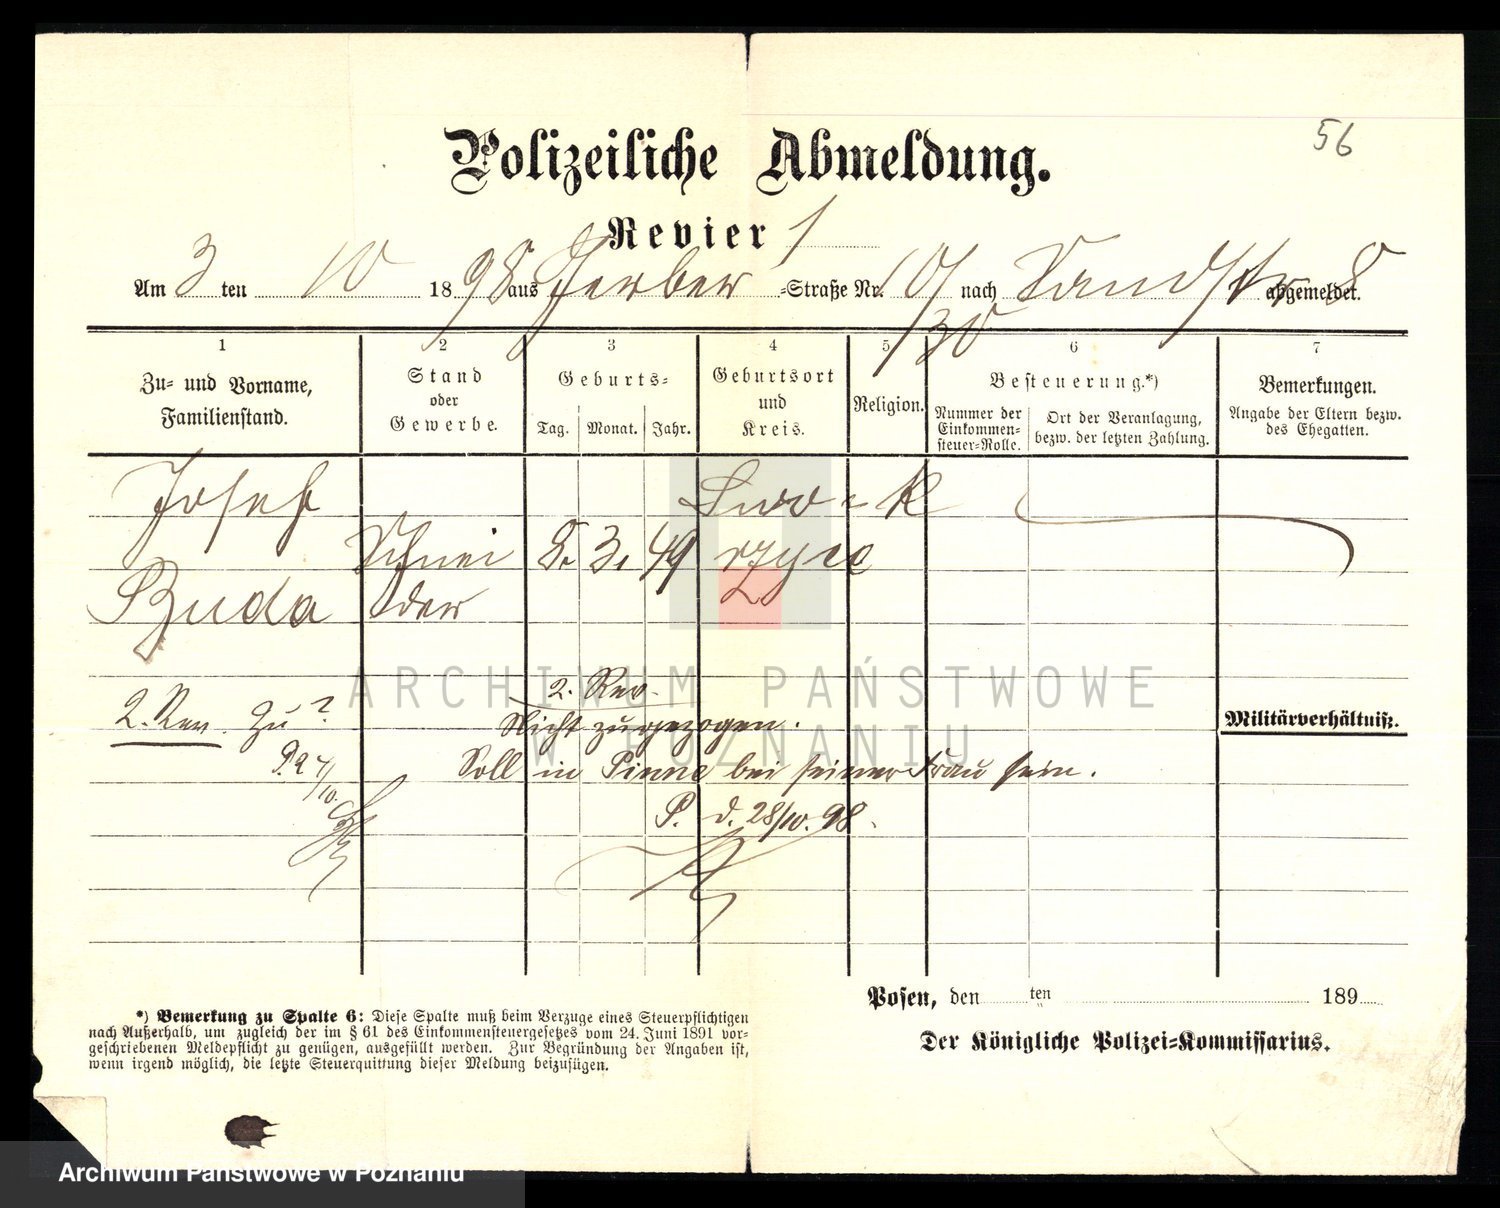 56
Polizeiliche Abmeldung.
Revier 1
Am 3 ten 10 1898 aus Gerber -Straße Nr. 10/ nach Sandstr 8 abgemeldet.
30
1 2 3 4 5 6 7
Zu- und Vorname, Familienstand.
Stand oder Gewerbe.
Geburts-
Tag. Monat. Jahr.
Geburtsort und Kreis.
Religion.
Besteuerung.*)
Nummer der Einkommensteuer-Rolle.
Ort der Veranlagung, bezw. der letzten Zahlung.
Bemerkungen.
Angabe der Eltern bezw. des Ehegatten.
Josef
Schnei 8. 3. 49
Buda der
2. Rev. zu?
2. Rev.
Nicht zugezogen.
Militärverhältniß.
Soll in Pinne bei seiner Frau sein.
P. d. 28/10. 98.
Posen, den ten 189
Der Königliche Polizei-Kommissarius.
*) Bemerkung zu Spalte 6: Diese Spalte muß beim Verzuge eines Steuerpflichtigen
nach Außerhalb, um zugleich der im § 61 des Einkommensteuergesetzes vom 24. Juni 1891 vor-
geschriebenen Meldepflicht zu genügen, ausgefüllt werden. Zur Begründung der Angaben ist,
wenn irgend möglich, die letzte Steuerquittung dieser Meldung beizufügen.
ARCHIWUM PAŃSTWOWE
W POZNANIU
Archiwum Państwowe w Poznaniu